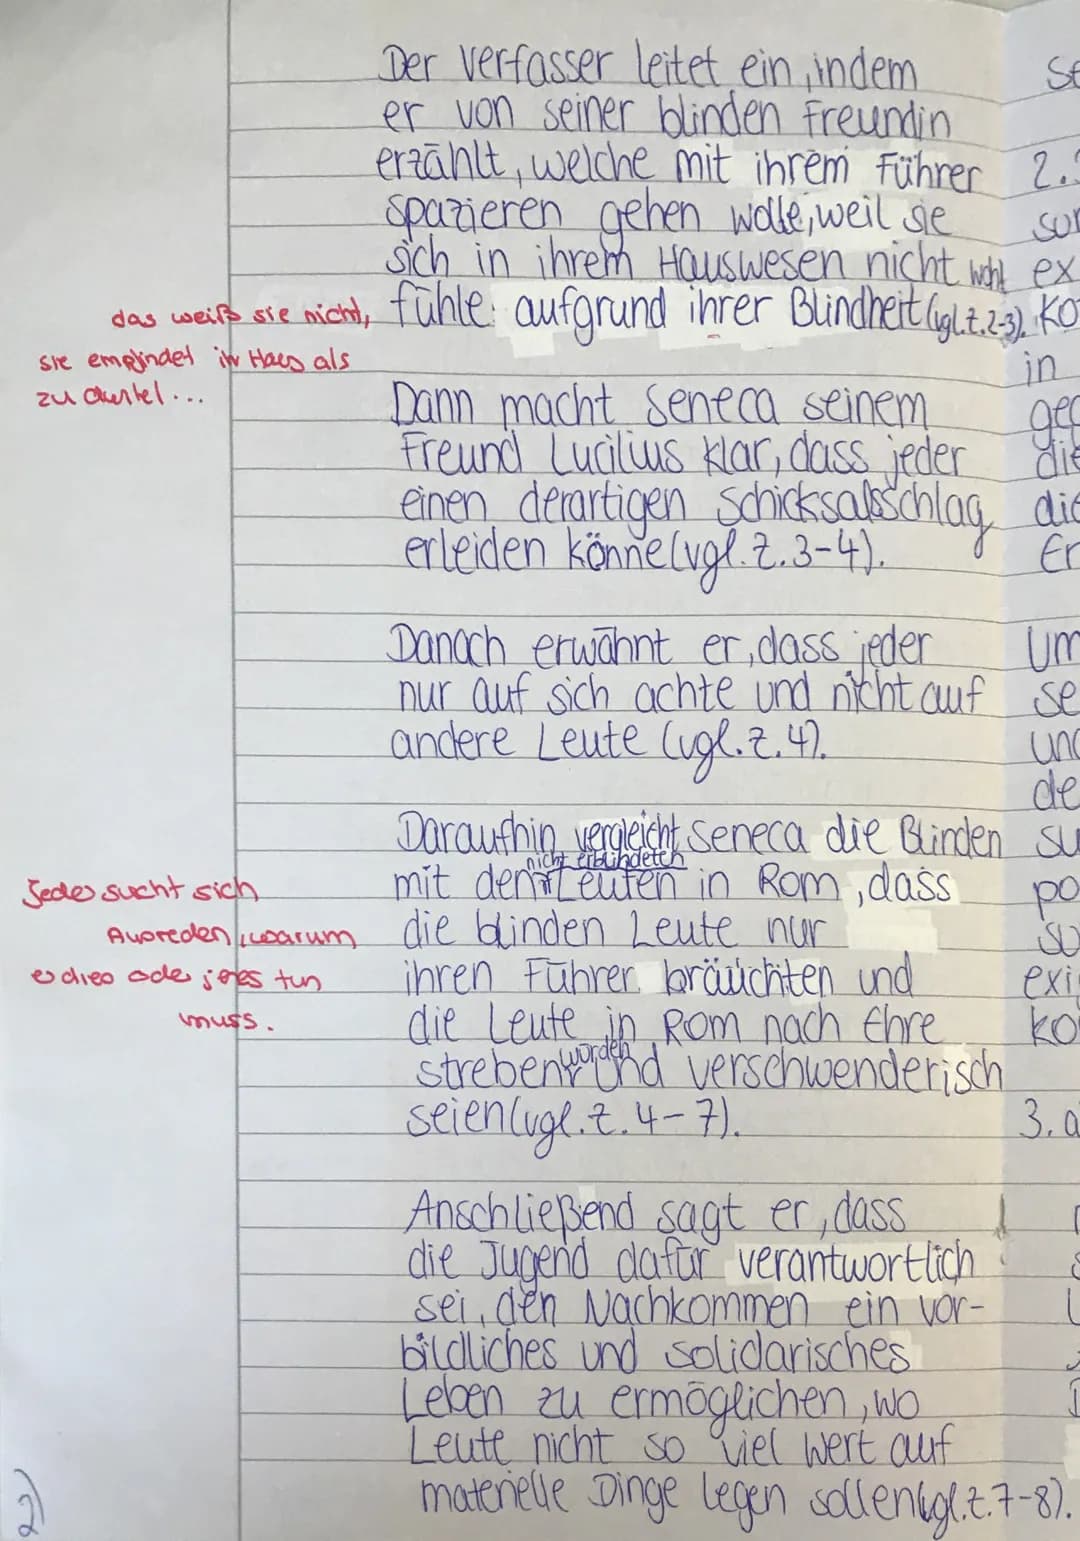 Der Verfasser leitet ein, indem
er von seiner blinden Freundin
erzählt, welche mit ihrem Führer
spazieren gehen wolle, weil sie
sich in ihrem Hauswesen nicht wohl
fühle aufgrund ihrer Blindheit (vgl. Z. 2-3).
das weiß sie nicht,
sie empfindet ihr Haus als
zu dunkel...
Dann macht Seneca seinem
Freund Lucilius klar, dass jeder
einen derartigen Schicksalsschlag
erleiden könne (vgl. Z. 3-4).
Danach erwähnt er, dass jeder
nur auf sich achte und nicht auf
andere Leute (vgl. Z. 4).
Daraufhin vergleicht Seneca die Blinden
nicht erblindeten
mit den Leuten in Rom, dass
die blinden Leute nur
ihren Führer bräuchten und
die Leute in Rom nach Ehre
streben würden und verschwenderisch
seien (vgl. Z. 4-7).
Jeder sucht sich
Ausreden, warum
er dies oder jenes tun
muss.
Anschließend sagt er, dass
die Jugend dafür verantwortlich
sei, den Nachkommen ein vor-
bildliches und solidarisches
Leben zu ermöglichen, wo
Leute nicht so viel Wert auf
materielle Dinge legen sollen (vgl. Z. 7-8).
2)
se
2.
ex
in
die
Er
Um
se
de
po
exi
3. a